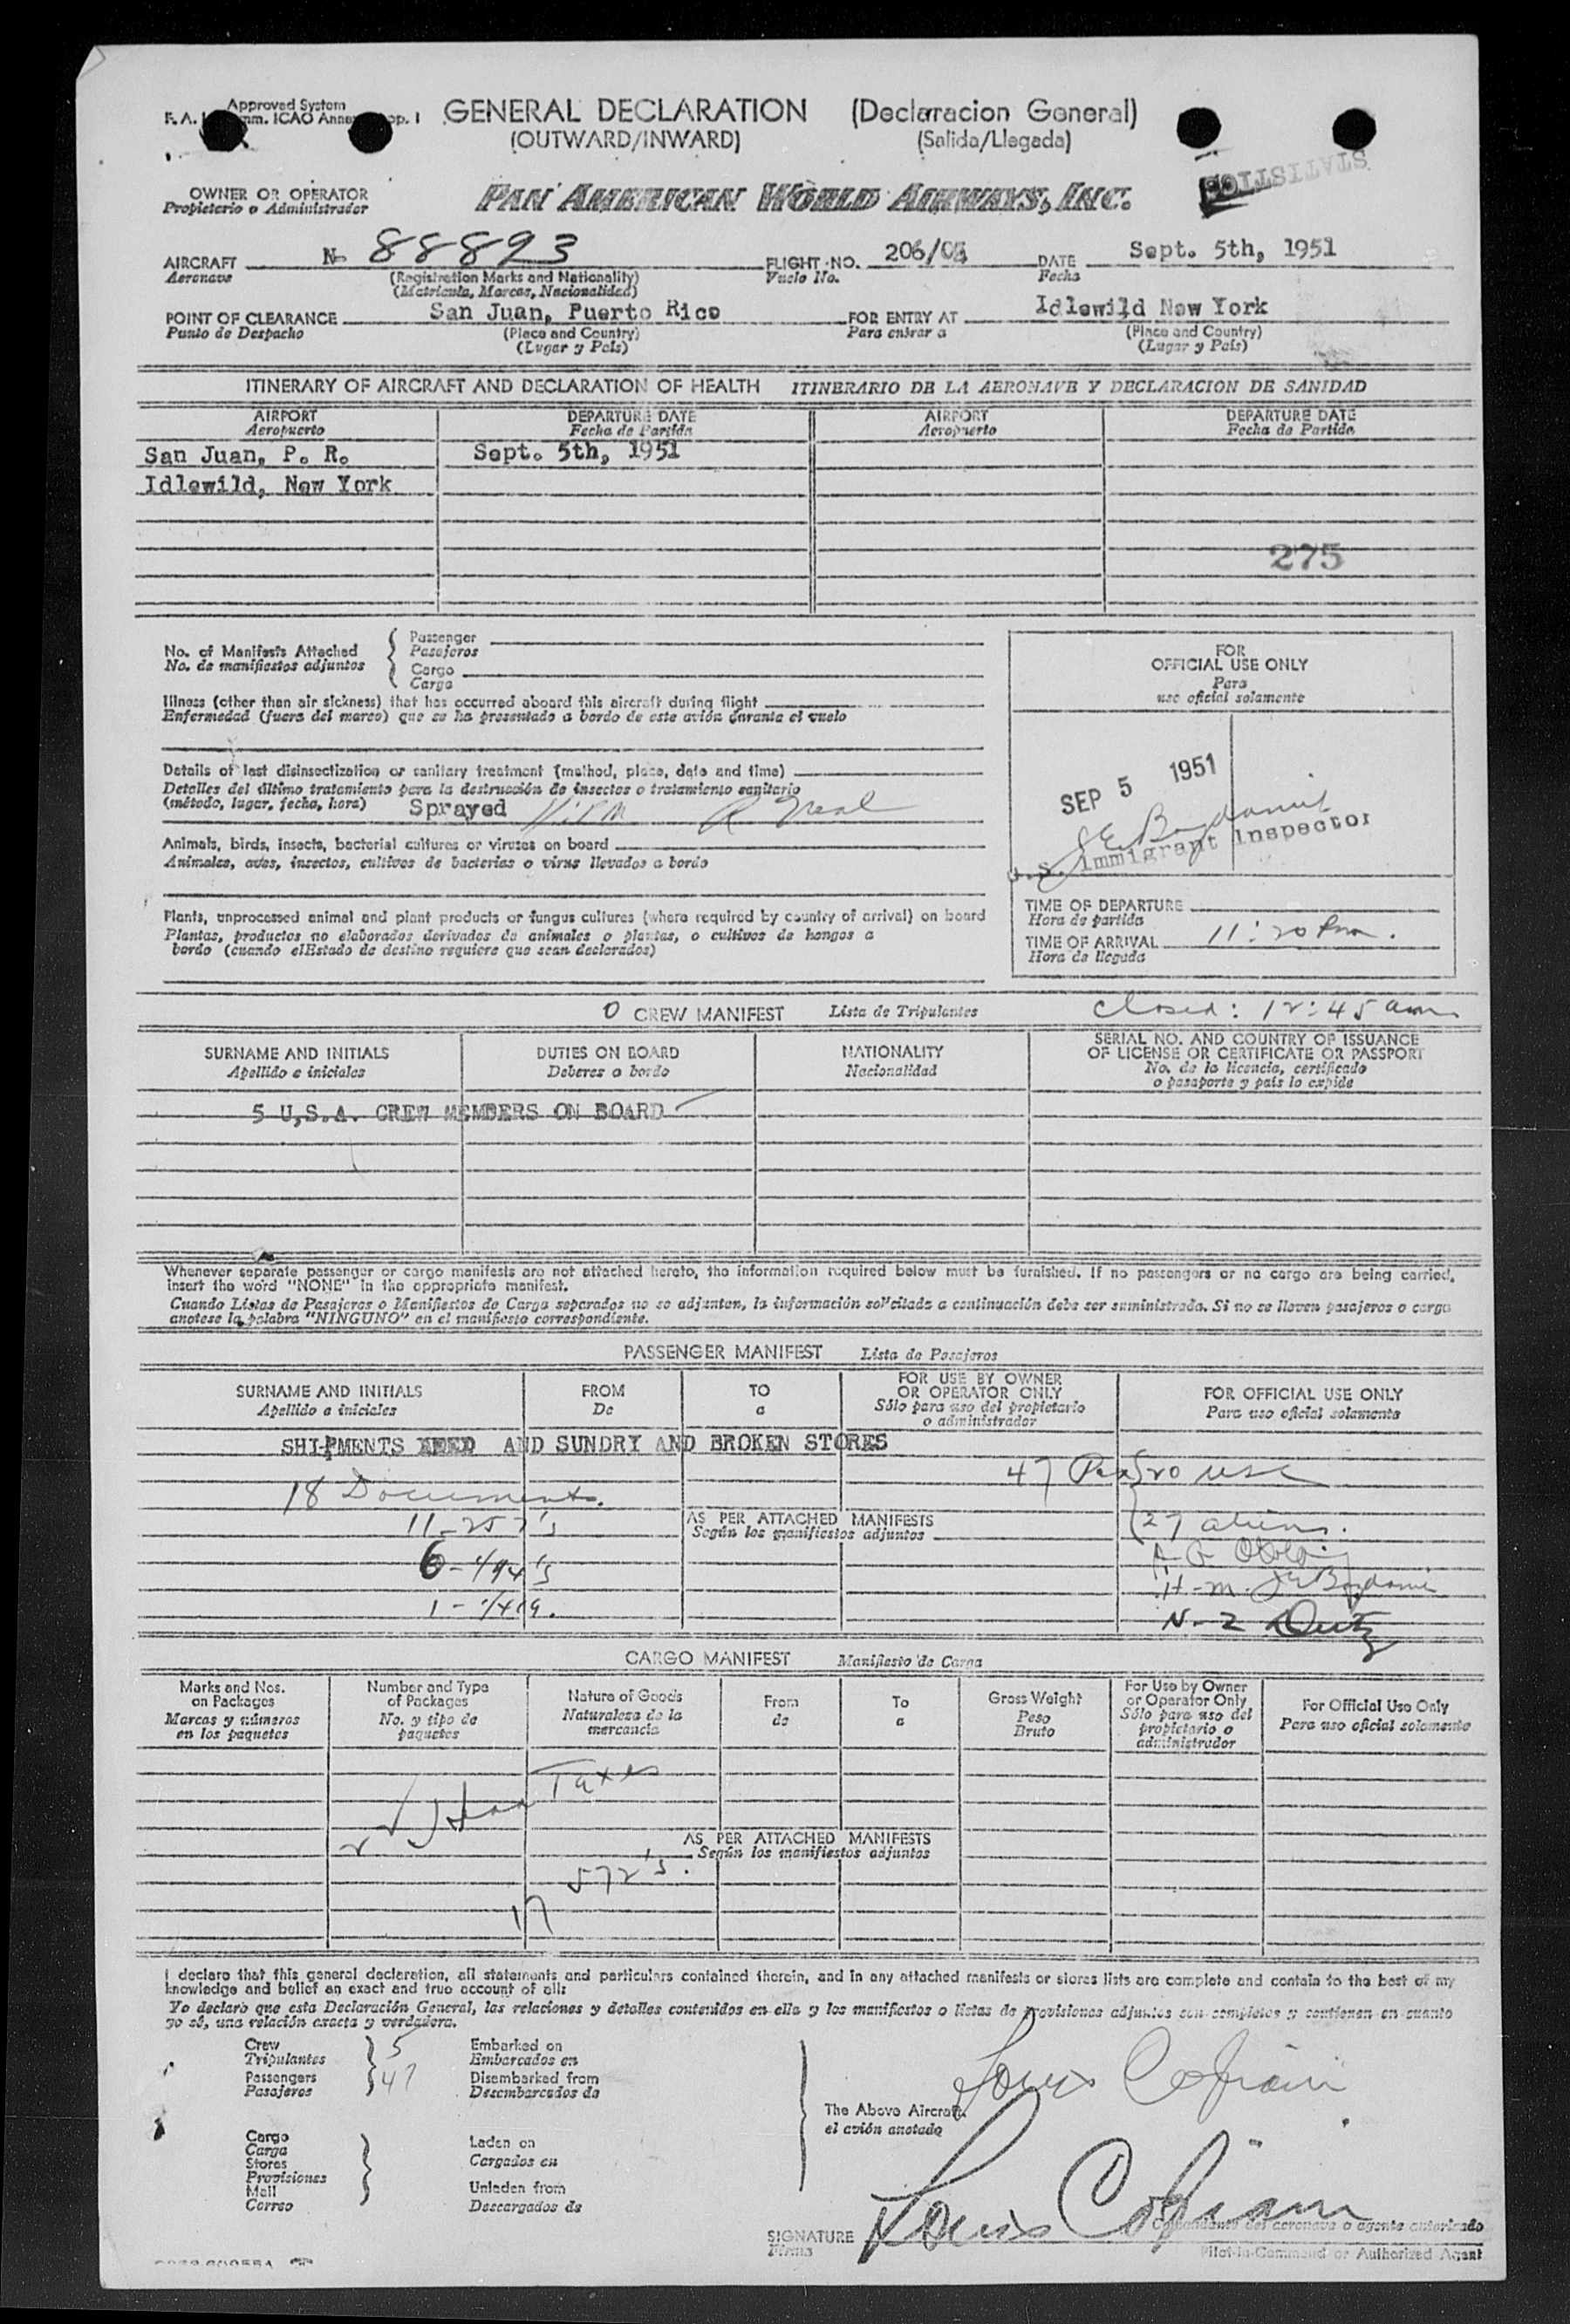 Approved System
GENERAL DECLARATION (Declaracion General)
(OUTWARD/INWARD) (Salida/Llegada)
STATISTICS
OWNER OR OPERATOR PAN AMERICAN WORLD AIRWAYS, INC.
Propietario o Administrador
AIRCRAFT N- 88893 FLIGHT NO. 206/05 DATE Sept. 5th, 1951
Aeronave (Registration Marks and Nationality) Vuelo No. Fecha
(Matricula, Marcas, Nacionalidad)
POINT OF CLEARANCE San Juan, Puerto Rico FOR ENTRY AT Idlewild New York
Punto de Despacho (Place and Country) Para entrar a (Place and Country)
(Lugar y País) (Lugar y País)
ITINERARY OF AIRCRAFT AND DECLARATION OF HEALTH ITINERARIO DE LA AERONAVE Y DECLARACION DE SANIDAD
AIRPORT DEPARTURE DATE AIRPORT DEPARTURE DATE
Aeropuerto Fecha de Partida Aeropuerto Fecha de Partida
San Juan, P. R. Sept. 5th, 1951
Idlewild, New York
275
No. of Manifests Attached Passenger
No. de manifiestos adjuntos Pasajeros
Cargo
Carga
FOR
OFFICIAL USE ONLY
Para
uso oficial solamente
Illness (other than air sickness) that has occurred aboard this aircraft during flight
Enfermedad (fuera del mareo) que se ha presentado a bordo de este avión durante el vuelo
Details of last disinsectization or sanitary treatment (method, place, date and time)
Detalles del último tratamiento para la destrucción de insectos o tratamiento sanitario
(método, lugar, fecha, hora) Sprayed
SEP 5 1951
U.S. Immigrant Inspector
Animals, birds, insects, bacterial cultures or viruses on board
Animales, aves, insectos, cultivos de bacterias o virus llevados a bordo
Plants, unprocessed animal and plant products or fungus cultures (where required by country of arrival) on board
Plantas, productos no elaborados derivados de animales o plantas, o cultivos de hongos a
bordo (cuando elEstado de destino requiere que sean declarados)
TIME OF DEPARTURE
Hora de partida
TIME OF ARRIVAL 11:20 Pm.
Hora de llegada
0 CREW MANIFEST Lista de Tripulantes Closed: 12:45 am
SURNAME AND INITIALS DUTIES ON BOARD NATIONALITY SERIAL NO. AND COUNTRY OF ISSUANCE
OF LICENSE OR CERTIFICATE OR PASSPORT
Apellido e iniciales Deberes a bordo Nacionalidad No. de la licencia, certificado
o pasaporte y país lo expide
5 U,S.A. CREW MEMBERS ON BOARD
Whenever separate passenger or cargo manifests are not attached hereto, the information required below must be furnished. If no passengers or no cargo are being carried,
insert the word "NONE" in the appropriate manifest.
Cuando Listas de Pasajeros o Manifiestos de Carga separados no se adjuntan, la información solicitada a continuación debe ser suministrada. Si no se llevan pasajeros o carga
anotese la palabra "NINGUNO" en el manifiesto correspondiente.
PASSENGER MANIFEST Lista de Pasajeros
SURNAME AND INITIALS FROM TO FOR USE BY OWNER
OR OPERATOR ONLY FOR OFFICIAL USE ONLY
Apellido e iniciales De a Sólo para uso del propietario
o administrador Para uso oficial solamente
SHIPMENTS AND SUNDRY AND BROKEN STORES
47 Pax 20 USC
18 Documents.
11-257's AS PER ATTACHED MANIFESTS 27 aliens.
Según los manifiestos adjuntos
6-I/94's
1-I/419.
CARGO MANIFEST Manifiesto de Carga
Marks and Nos.
on Packages
Marcas y números
en los paquetes
Number and Type
of Packages
No. y tipo de
paquetes
Nature of Goods
Naturaleza de la
mercancia
From
de
To
a
Gross Weight
Peso
Bruto
For Use by Owner
or Operator Only
Sólo para uso del
propietario o
administrador
For Official Use Only
Para uso oficial solamente
Taxes
AS PER ATTACHED MANIFESTS
Según los manifiestos adjuntos
572's.
17
I declare that this general declaration, all statements and particulars contained therein, and in any attached manifests or stores lists are complete and contain to the best of my
knowledge and belief an exact and true account of all:
Yo declaro que esta Declaración General, las relaciones y detalles contenidos en ella y los manifiestos o listas de provisiones adjuntos son completos y contienen en cuanto
yo sé, una relación exacta y verdadera.
Crew 5 Embarked on
Tripulantes Embarcados en
Passengers 47 Disembarked from
Pasajeros Desembarcados de
The Above Aircraft
el avión anotado
Cargo
Carga
Stores
Provisiones
Mail
Correo
Laden on
Cargados en
Unladen from
Descargados de
SIGNATURE Louis
Firma
Comandante del aeronave o agente autorizado
Pilot-in-Command or Authorized Agent